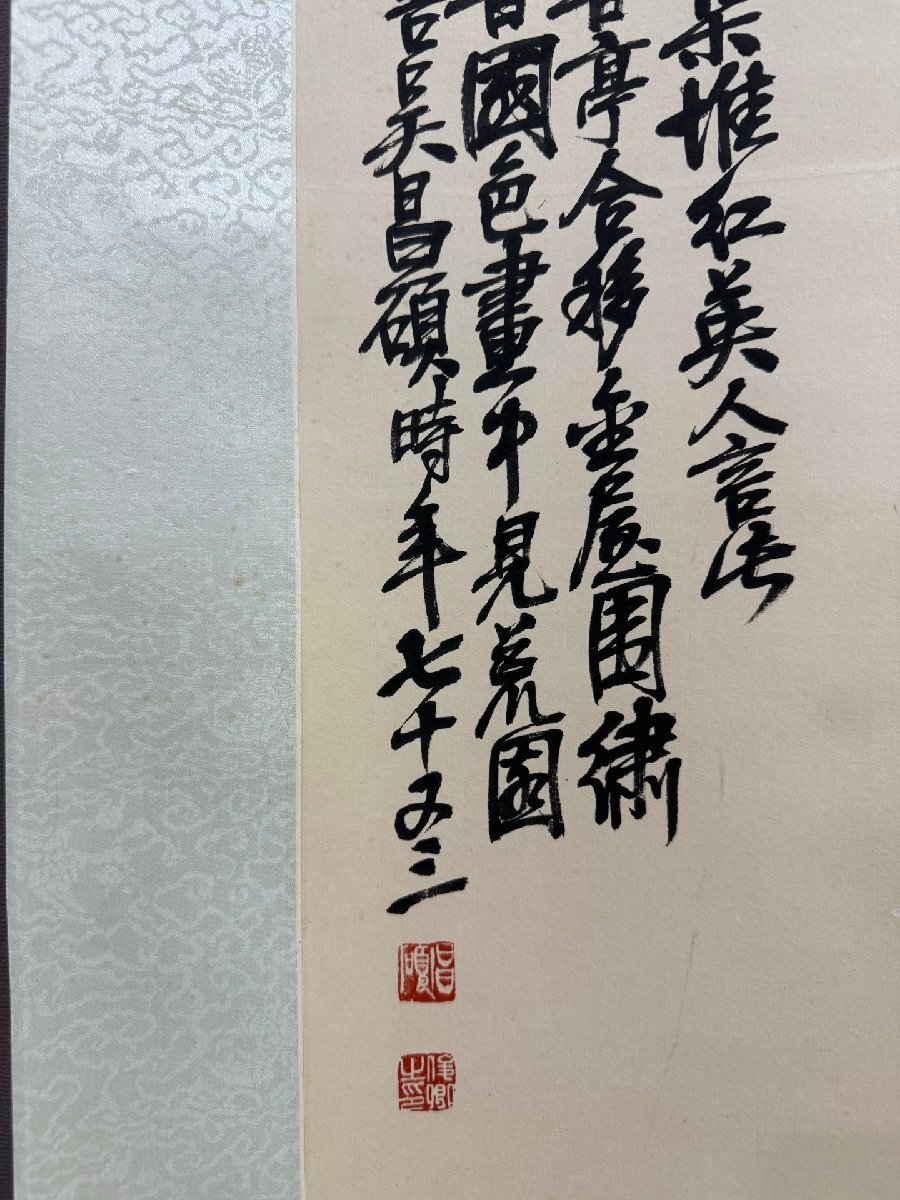 朵堆紅英人言此
亭合移金屋圍繡
國色畫中見荒園
吳昌碩時年七十又三
昌碩
俊卿之印